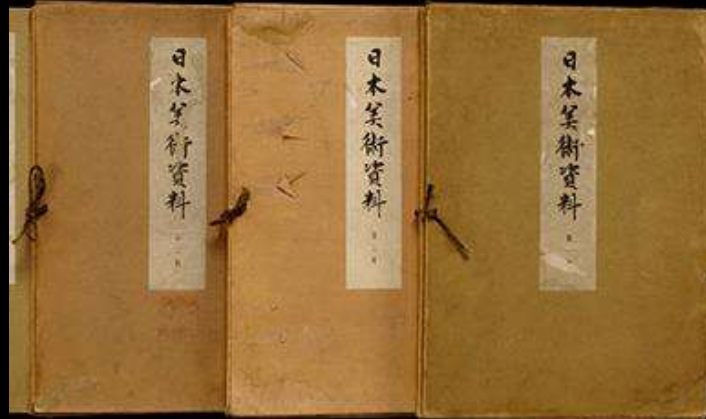 日本美術資料
日本美術資料
日本美術資料